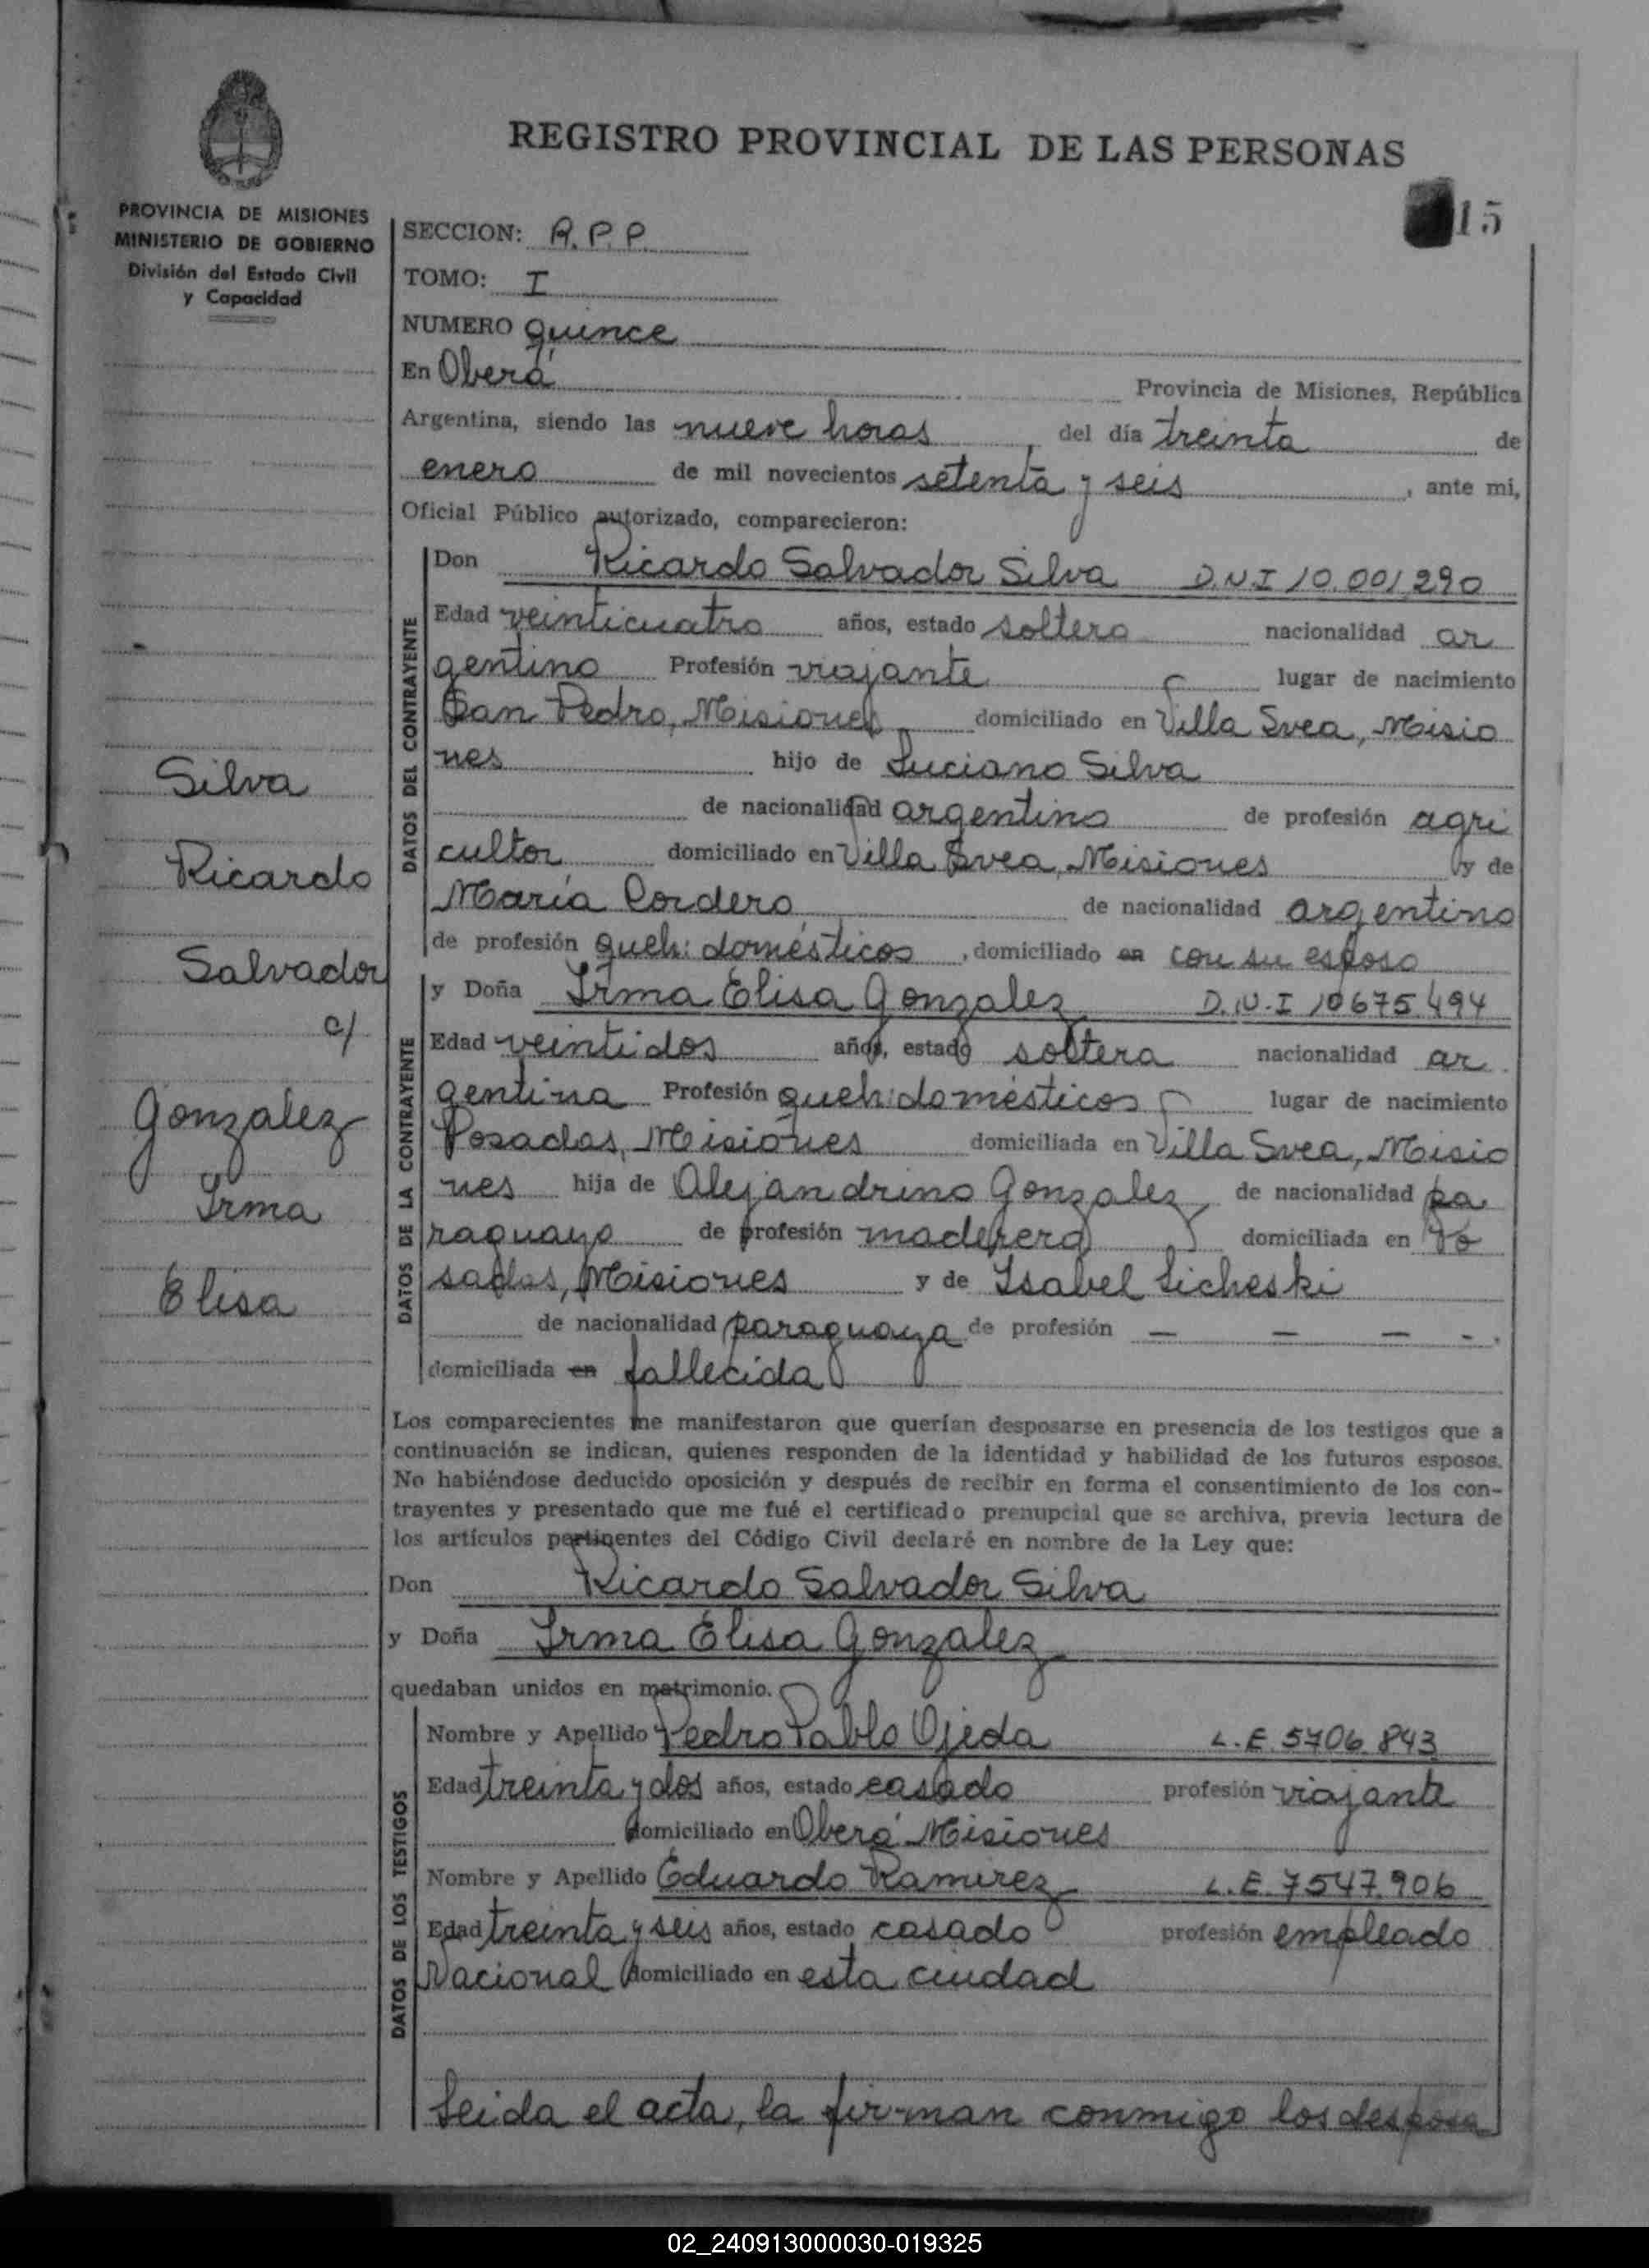 REGISTRO PROVINCIAL DE LAS PERSONAS
15
PROVINCIA DE MISIONES
MINISTERIO DE GOBIERNO
División del Estado Civil
y Capacidad
SECCION: R.P.P.
TOMO: I
NUMERO quince
En Oberá Provincia de Misiones, República
Argentina, siendo las nueve horas, del día treinta de
enero de mil novecientos setenta y seis, ante mi,
Oficial Público autorizado, comparecieron:
DATOS DEL CONTRAYENTE
Don Ricardo Salvador Silva D.N.I 10.001.290
Edad veinticuatro años, estado soltero nacionalidad ar
gentino Profesión viajante lugar de nacimiento
San Pedro, Misiones domiciliado en Villa Svea, Misio
nes hijo de Luciano Silva
de nacionalidad argentino de profesión agri
cultor domiciliado en Villa Svea, Misiones y de
María Cordero de nacionalidad argentino
de profesión queh: domésticos, domiciliado en con su esposo
DATOS DE LA CONTRAYENTE
y Doña Irma Elisa Gonzalez D.N.I 10675.494
Edad veintidos años, estado soltera nacionalidad ar
gentina Profesión queh: domésticos lugar de nacimiento
Posadas, Misiones domiciliada en Villa Svea, Misio
nes hija de Alejandrino Gonzalez de nacionalidad pa
raguayo de profesión maderero domiciliada en Po
sadas, Misiones y de Isabel Licheski
de nacionalidad paraguaya de profesión — — — -.
domiciliada en fallecida
Los comparecientes me manifestaron que querían desposarse en presencia de los testigos que a
continuación se indican, quienes responden de la identidad y habilidad de los futuros esposos.
No habiéndose deducido oposición y después de recibir en forma el consentimiento de los con-
trayentes y presentado que me fué el certificado prenupcial que se archiva, previa lectura de
los artículos pertinentes del Código Civil declaré en nombre de la Ley que:
Don Ricardo Salvador Silva
y Doña Irma Elisa Gonzalez
quedaban unidos en matrimonio.
DATOS DE LOS TESTIGOS
Nombre y Apellido Pedro Pablo Ojeda L.E. 5706.843
Edad treinta y dos años, estado casado profesión viajante
domiciliado en Oberá Misiones
Nombre y Apellido Eduardo Ramirez L.E. 7547.906
Edad treinta y seis años, estado casado profesión empleado
Nacional domiciliado en esta ciudad
Leida el acta, la firman conmigo los desposa
Silva
Ricardo
Salvador
c/
Gonzalez
Irma
Elisa
02_240913000030-019325